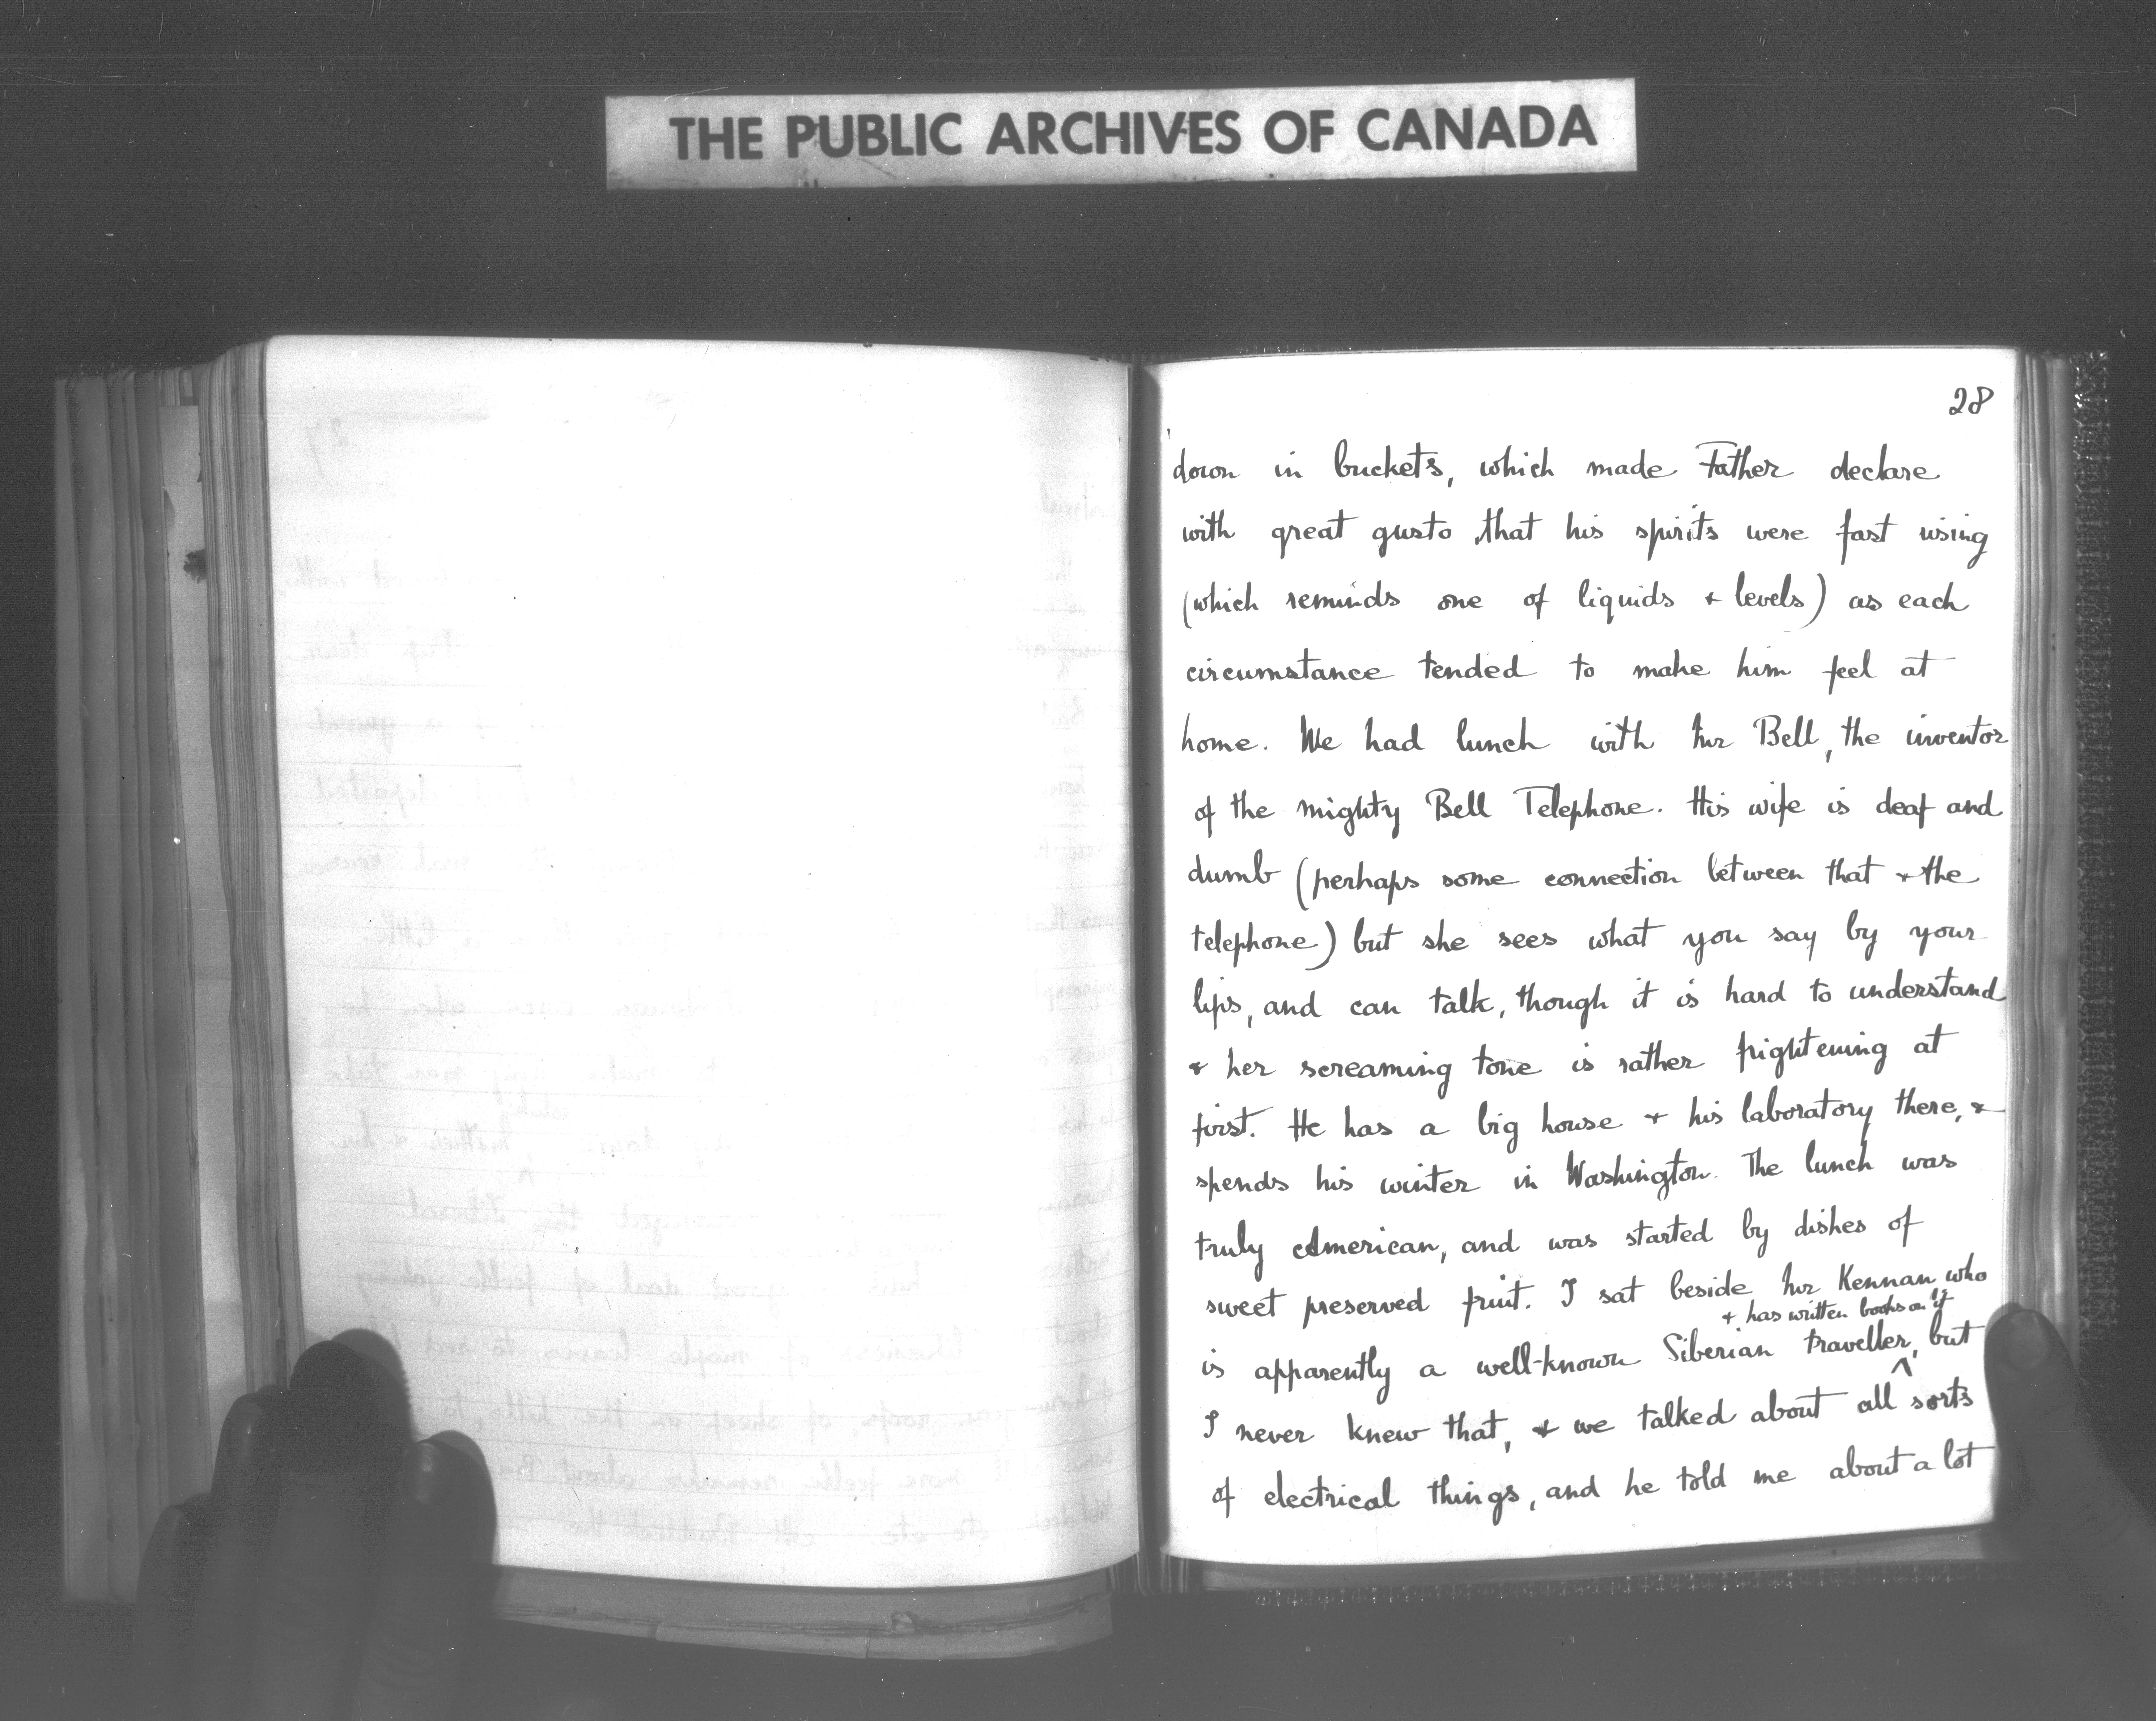 THE PUBLIC ARCHIVES OF CANADA
28
down in buckets, which made Father declare
with great gusto that his spirits were fast rising
(which reminds one of liquids & levels) as each
circumstance tended to make him feel at
home. We had lunch with Mr Bell, the inventor
of the mighty Bell Telephone. His wife is deaf and
dumb (perhaps some connection between that & the
telephone) but she sees what you say by your
lips, and can talk, though it is hard to understand
& her screaming tone is rather frightening at
first. He has a big house & his laboratory there, &
spends his winter in Washington. The lunch was
truly American, and was started by dishes of
sweet preserved fruit. I sat beside Mr Kennan who
& has written books on it
is apparently a well-known Siberian traveller, but
I never knew that, & we talked about all sorts
of electrical things, and he told me about a lot